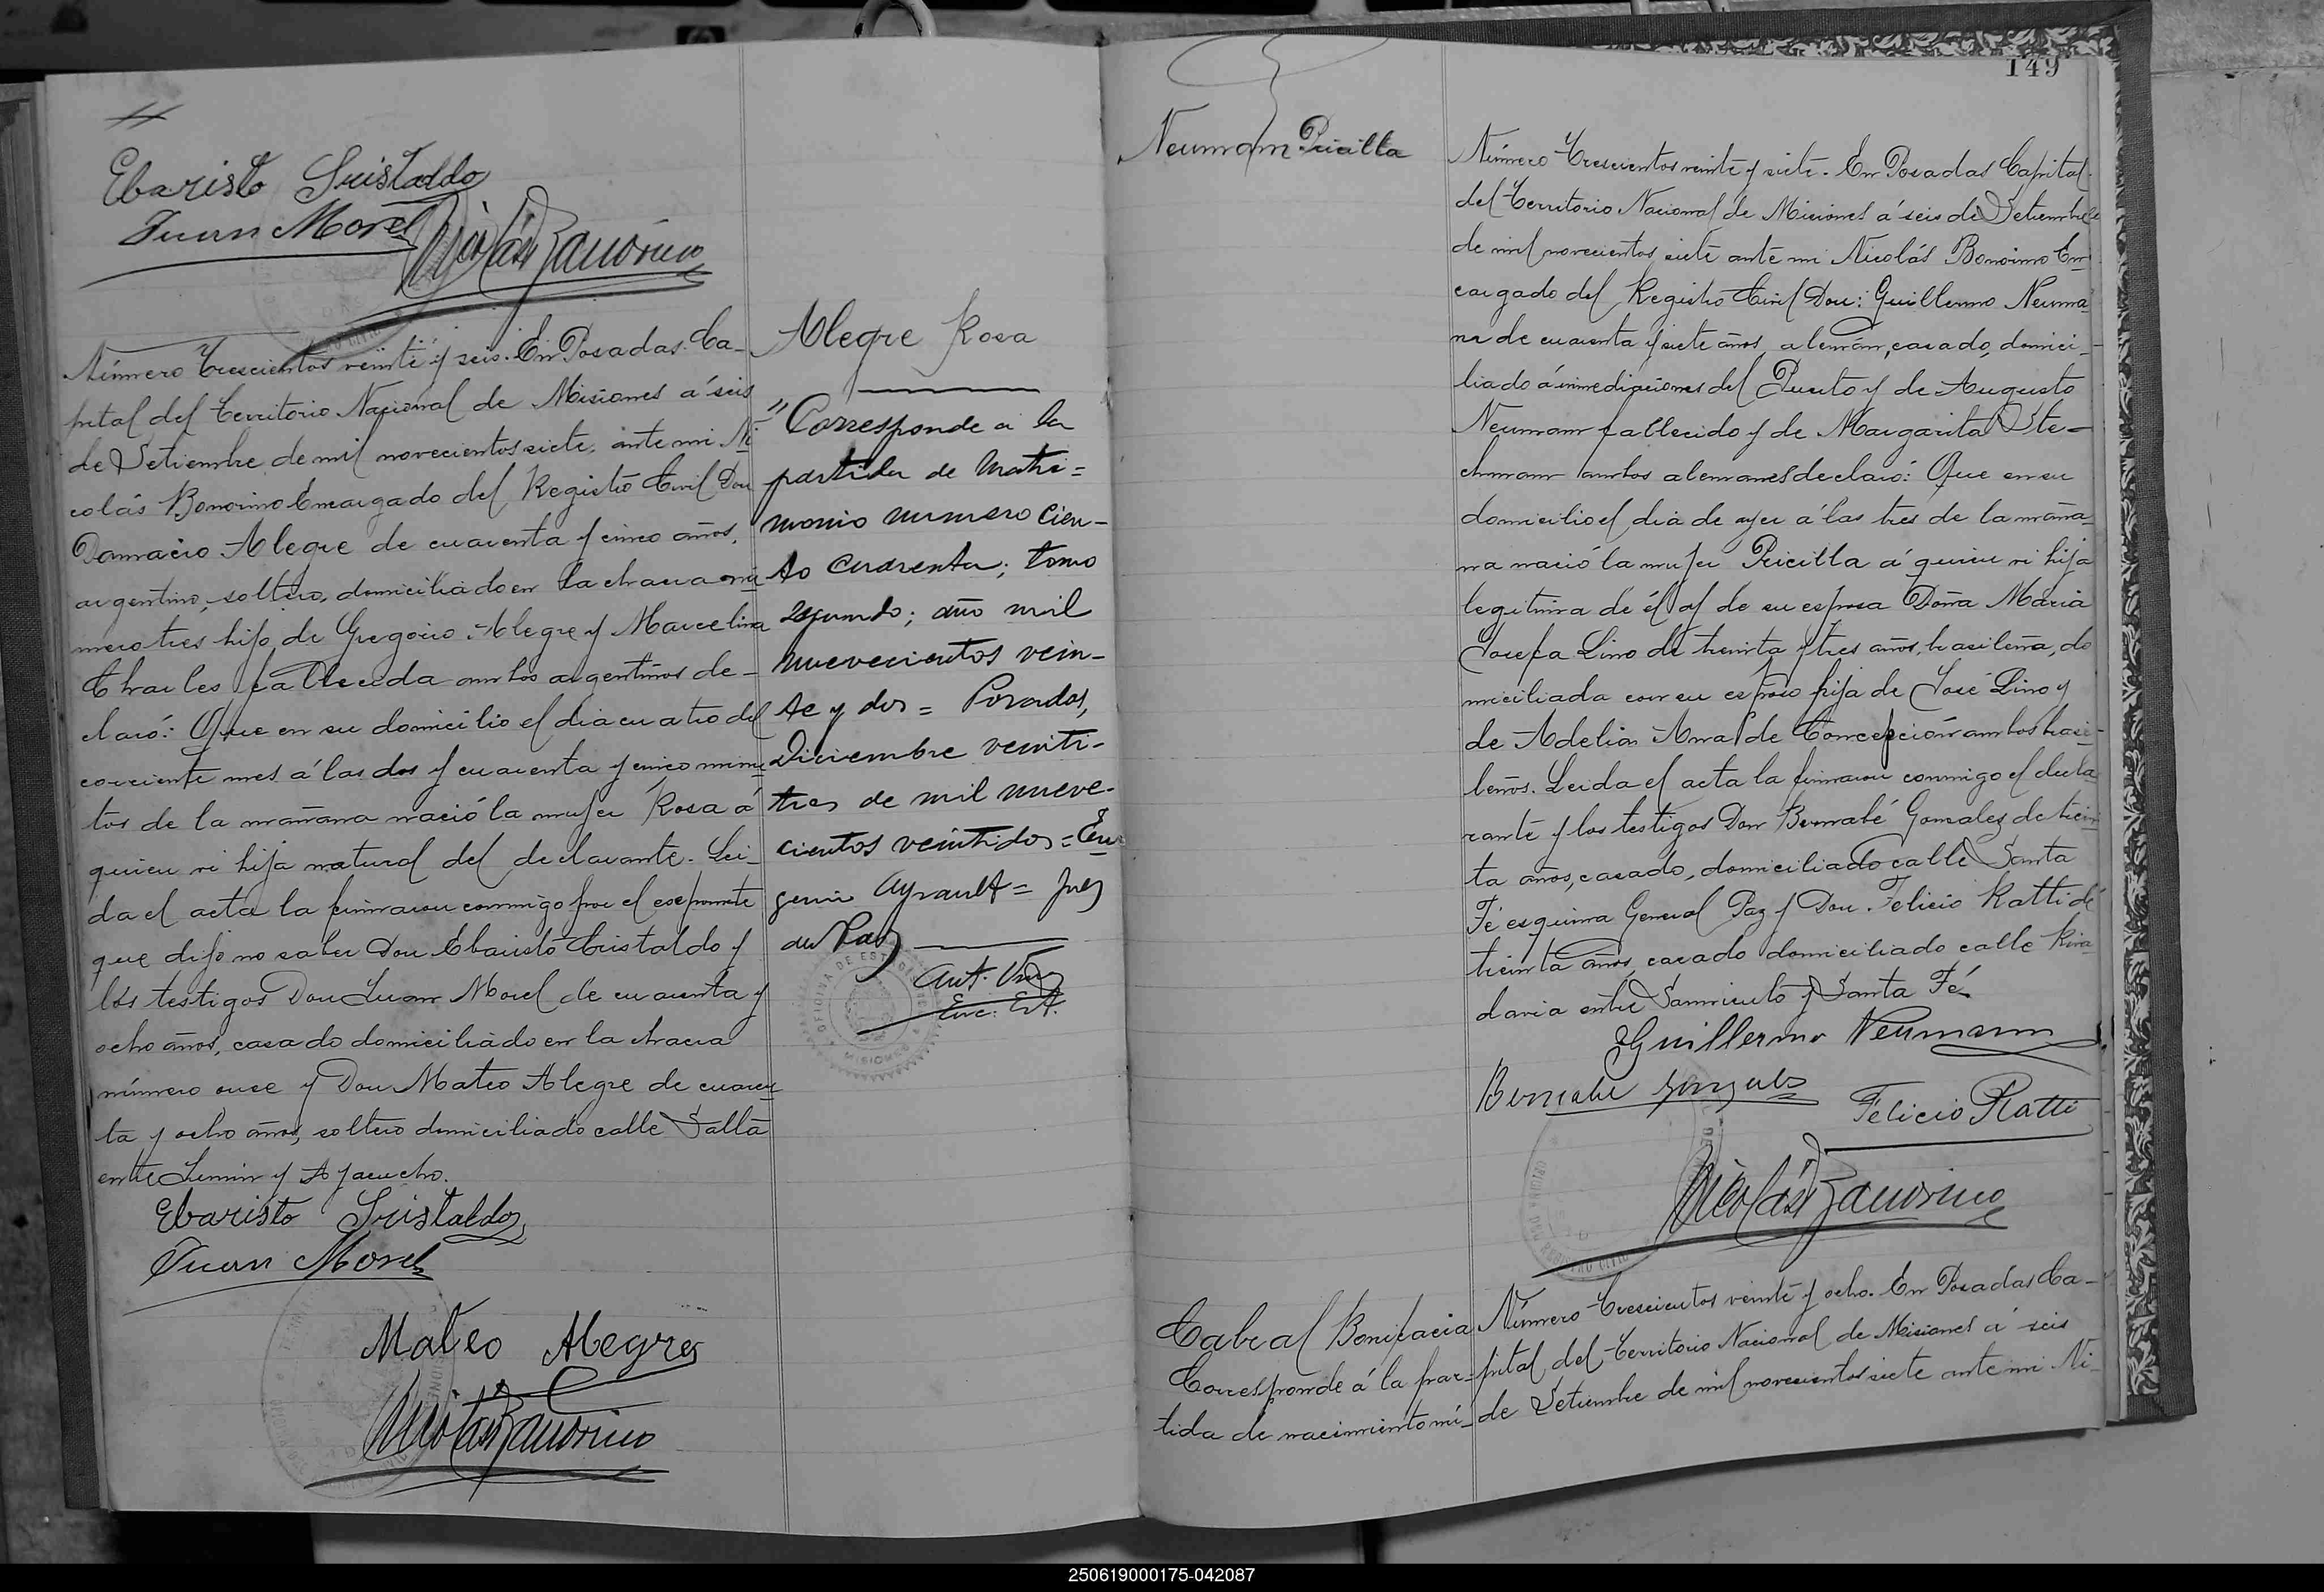 Ebaristo Cristaldo
Juan Morel
Nicolás Bonorino
Número Trescientos veinte y seis. En Posadas Ca-
pital del Territorio Nacional de Misiones á seis
de Setiembre de mil novecientos siete, ante mi Ni-
colás Bonorino Encargado del Registro Civil Don
Damacio Alegre de cuarenta y cinco años,
argentino, soltero, domiciliado en la chacra nú-
mero tres hijo de Gregorio Alegre y Marcelina
fallecida ambos argentinos de-
claró: Que en su domicilio el dia cuatro del
corriente mes á las dos y cuarenta y cinco minu-
tos de la mañana nació la mujer Rosa á
quien vi hija natural del declarante. Lei-
da el acta la firmaron conmigo por el exponente
que dijo no saber Don Ebaristo Cristaldo y
los testigos Don Juan Morel de cuarenta y
ocho años, casado domiciliado en la chacra
número once y Don Mateo Alegre de cuaren-
ta y ocho años, soltero domiciliado calle Salta
entre Junin y Ayacucho.
Ebaristo Cristaldo
Juan Morel
Mateo Alegre
Nicolás Bonorino
Alegre Rosa
"Corresponde a la
partida de matri=
monio numero cien-
to cuarenta; tomo
segundo; año mil
nuevecientos vein-
te y dos = Posadas,
Diciembre veinti-
tres de mil nueve-
cientos veintidos = Eu-
genio Ayrault = Juez
de Paz
Enc: Est.
OFICINA DE ESTADISTICA
MISIONES
149
Neumam Pricilla
Número Trescientos veinte y siete. En Posadas Capital
del Territorio Nacional de Misiones á seis de Setiembre
de mil novecientos siete ante mi Nicolás Bonorino En-
cargado del Registro Civil Don: Guillermo Neuma-
nn de cuarenta y siete años, alemán, casado, domici-
liado á inmediaciones del Puerto y de Augusto
Neumam fallecido y de Margarita Ste-
chmam ambos alemanes declaró: Que en su
domicilio el dia de ayer á las tres de la maña-
na nació la mujer Pricilla á quien vi hija
legitima de él y de su esposa Doña Maria
Josefa Lino de treinta y tres años, brasileña, do
miciliada con su esposo hija de José Lino y
de Adelia Ana de Concepción ambos brasi-
leños. Leida el acta la firmaron conmigo el decla
rante y los testigos Don Bernabé Gonzalez de trein
ta años, casado, domiciliado calle Santa
Fé esquina General Paz y Don Felicio Ratti de
treinta años, casado domiciliado calle Riva
davia entre Sarmiento y Santa Fé
Guillermo Neumann
Bernabe Gonzales
Felicio Ratti
Nicolás Bonorino
Cabral Bonifacia
Corresponde á la par-
tida de nacimiento nú-
Número Trescientos veinte y ocho. En Posadas Ca-
pital del Territorio Nacional de Misiones á seis
de Setiembre de mil novecientos siete ante mi Ni-
250619000175-042087